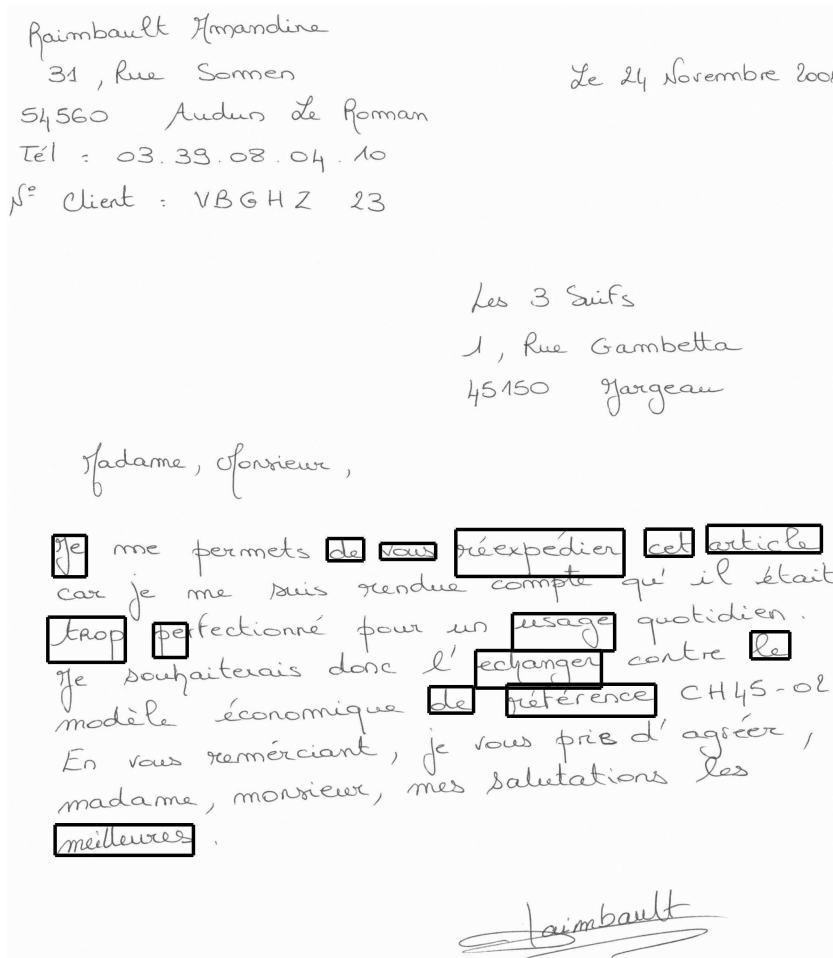 Raimbault Amandine
31, Rue Sonnen
Le 24 Novembre
54560 Audun Le Roman
Tél : 03.39.08.04.10
N° Client : VBGHZ 23
Les 3 Suifs
1, Rue Gambetta
45150 Jargeau
Madame, Monsieur,
Je me permets de vous réexpédier cet article
car je me suis rendue compte qu'il était
trop perfectionné pour un usage quotidien.
Je souhaiterais donc l'echanger contre le
modèle économique de référence CH45-02
En vous remérciant, je vous prie d'agréer,
madame, monsieur, mes salutations les
meilleures.
Raimbault